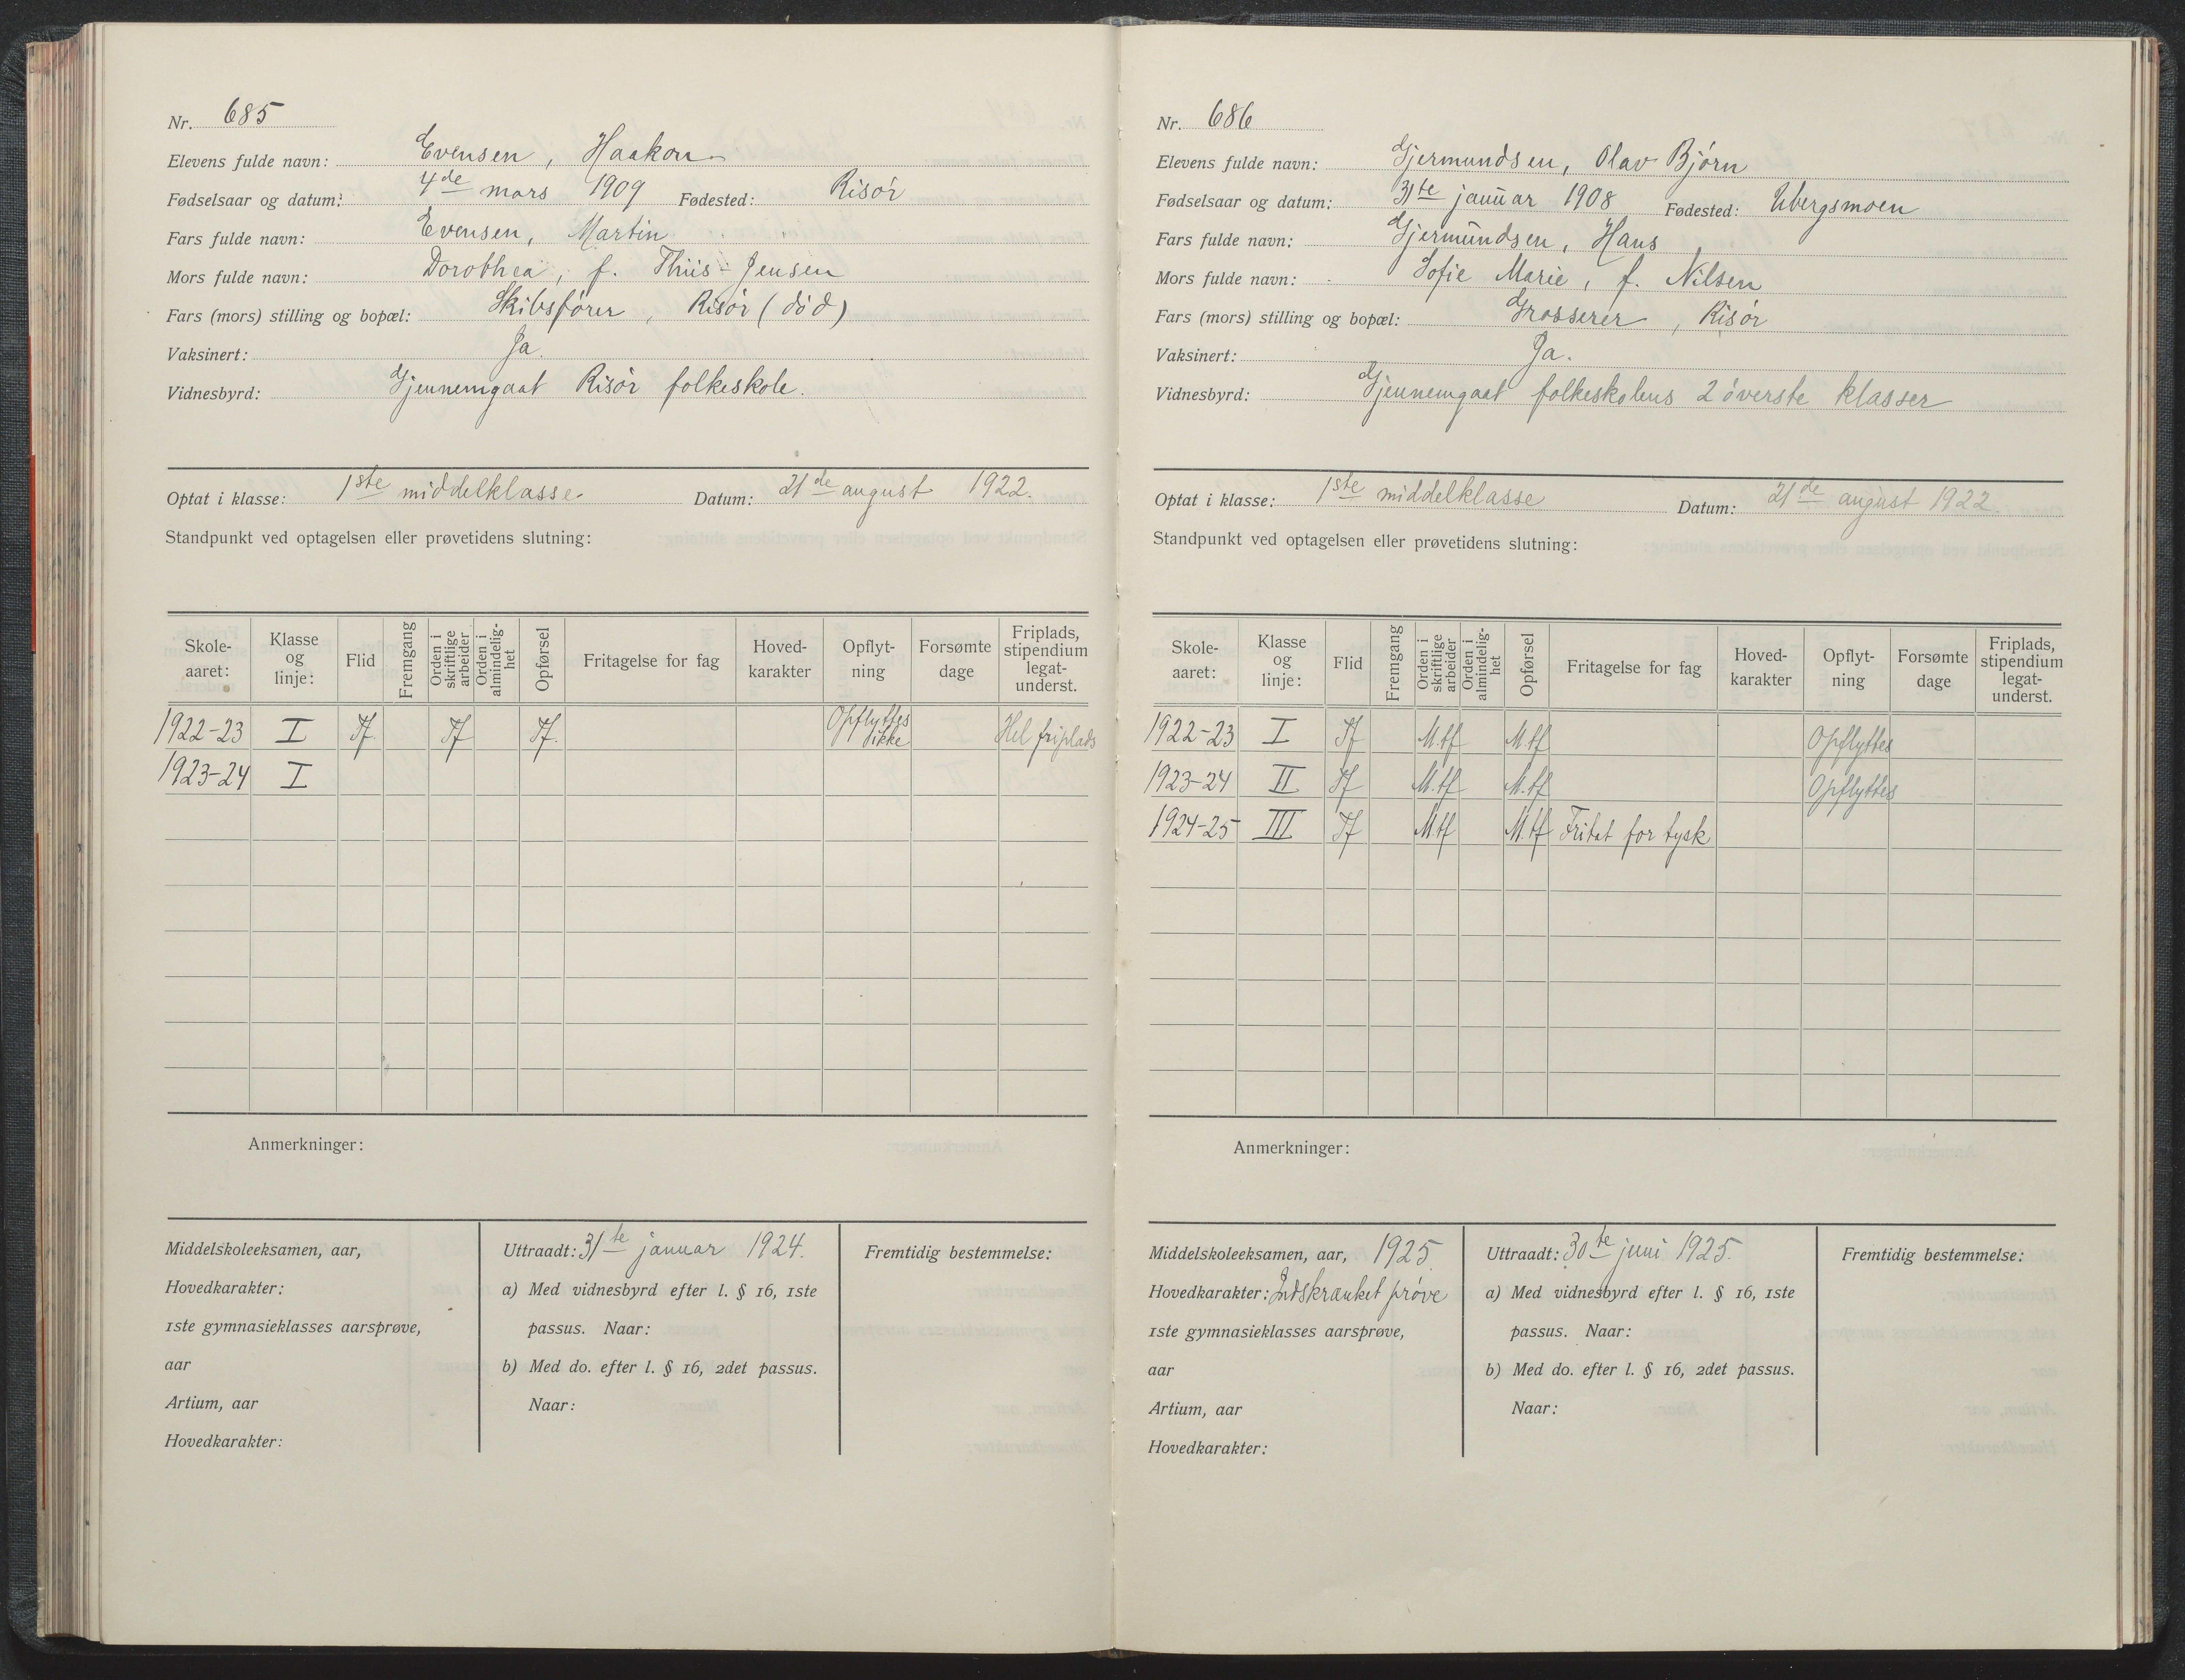 Nr. 685
Elevens fulde navn: Evensen, Haakon
Fødselsaar og datum: 4de mars 1909 Fødested: Risör
Fars fulde navn: Evensen, Martin
Mors fulde navn: Dorothea, f. Thiis-Jensen
Fars (mors) stilling og bopæl: Skibsfører, Risör (död)
Vaksinert: Ja.
Vidnesbyrd: Gjennemgaat Risör folkeskole.
Optat i klasse: 1ste middelklasse Datum: 21de august 1922.
Standpunkt ved optagelsen eller prøvetidens slutning:
Skole-aaret: Klasse og linje: Flid Fremgang Orden i skriftlige arbeider Orden i almindelig-het Opførsel Fritagelse for fag Hoved-karakter Opflyt-ning Forsømte dage Friplads, stipendium legat-underst.
1922-23 I Tf. Tf Tf. Opflyttes ikke Hel friplads
1923-24 I
Anmerkninger:
Middelskoleeksamen, aar,
Hovedkarakter:
1ste gymnasieklasses aarsprøve,
aar
Artium, aar
Hovedkarakter:
Uttraadt: 31te januar 1924.
a) Med vidnesbyrd efter l. § 16, 1ste
passus. Naar:
b) Med do. efter l. § 16, 2det passus.
Naar:
Fremtidig bestemmelse:
Nr. 686
Elevens fulde navn: Gjermundsen, Olav Björn
Fødselsaar og datum: 31te januar 1908 Fødested: Ubergsmoen
Fars fulde navn: Gjermundsen, Hans
Mors fulde navn: Sofie Marie, f. Nilsen
Fars (mors) stilling og bopæl: Grosserer, Risör
Vaksinert: Ja.
Vidnesbyrd: Gjennemgaat folkeskolens 2 överste klasser
Optat i klasse: 1ste middelklasse Datum: 21de august 1922.
Standpunkt ved optagelsen eller prøvetidens slutning:
Skole-aaret: Klasse og linje: Flid Fremgang Orden i skriftlige arbeider Orden i almindelig-het Opførsel Fritagelse for fag Hoved-karakter Opflyt-ning Forsømte dage Friplads, stipendium legat-underst.
1922-23 I Tf M.tf M.tf Opflyttes
1923-24 II Tf M.tf M.tf Opflyttes
1924-25 III Tf M.tf M.tf Fritat for tysk
Anmerkninger:
Middelskoleeksamen, aar, 1925.
Hovedkarakter: Indskrænket pröve
1ste gymnasieklasses aarsprøve,
aar
Artium, aar
Hovedkarakter:
Uttraadt: 30te juni 1925.
a) Med vidnesbyrd efter l. § 16, 1ste
passus. Naar:
b) Med do. efter l. § 16, 2det passus.
Naar:
Fremtidig bestemmelse: